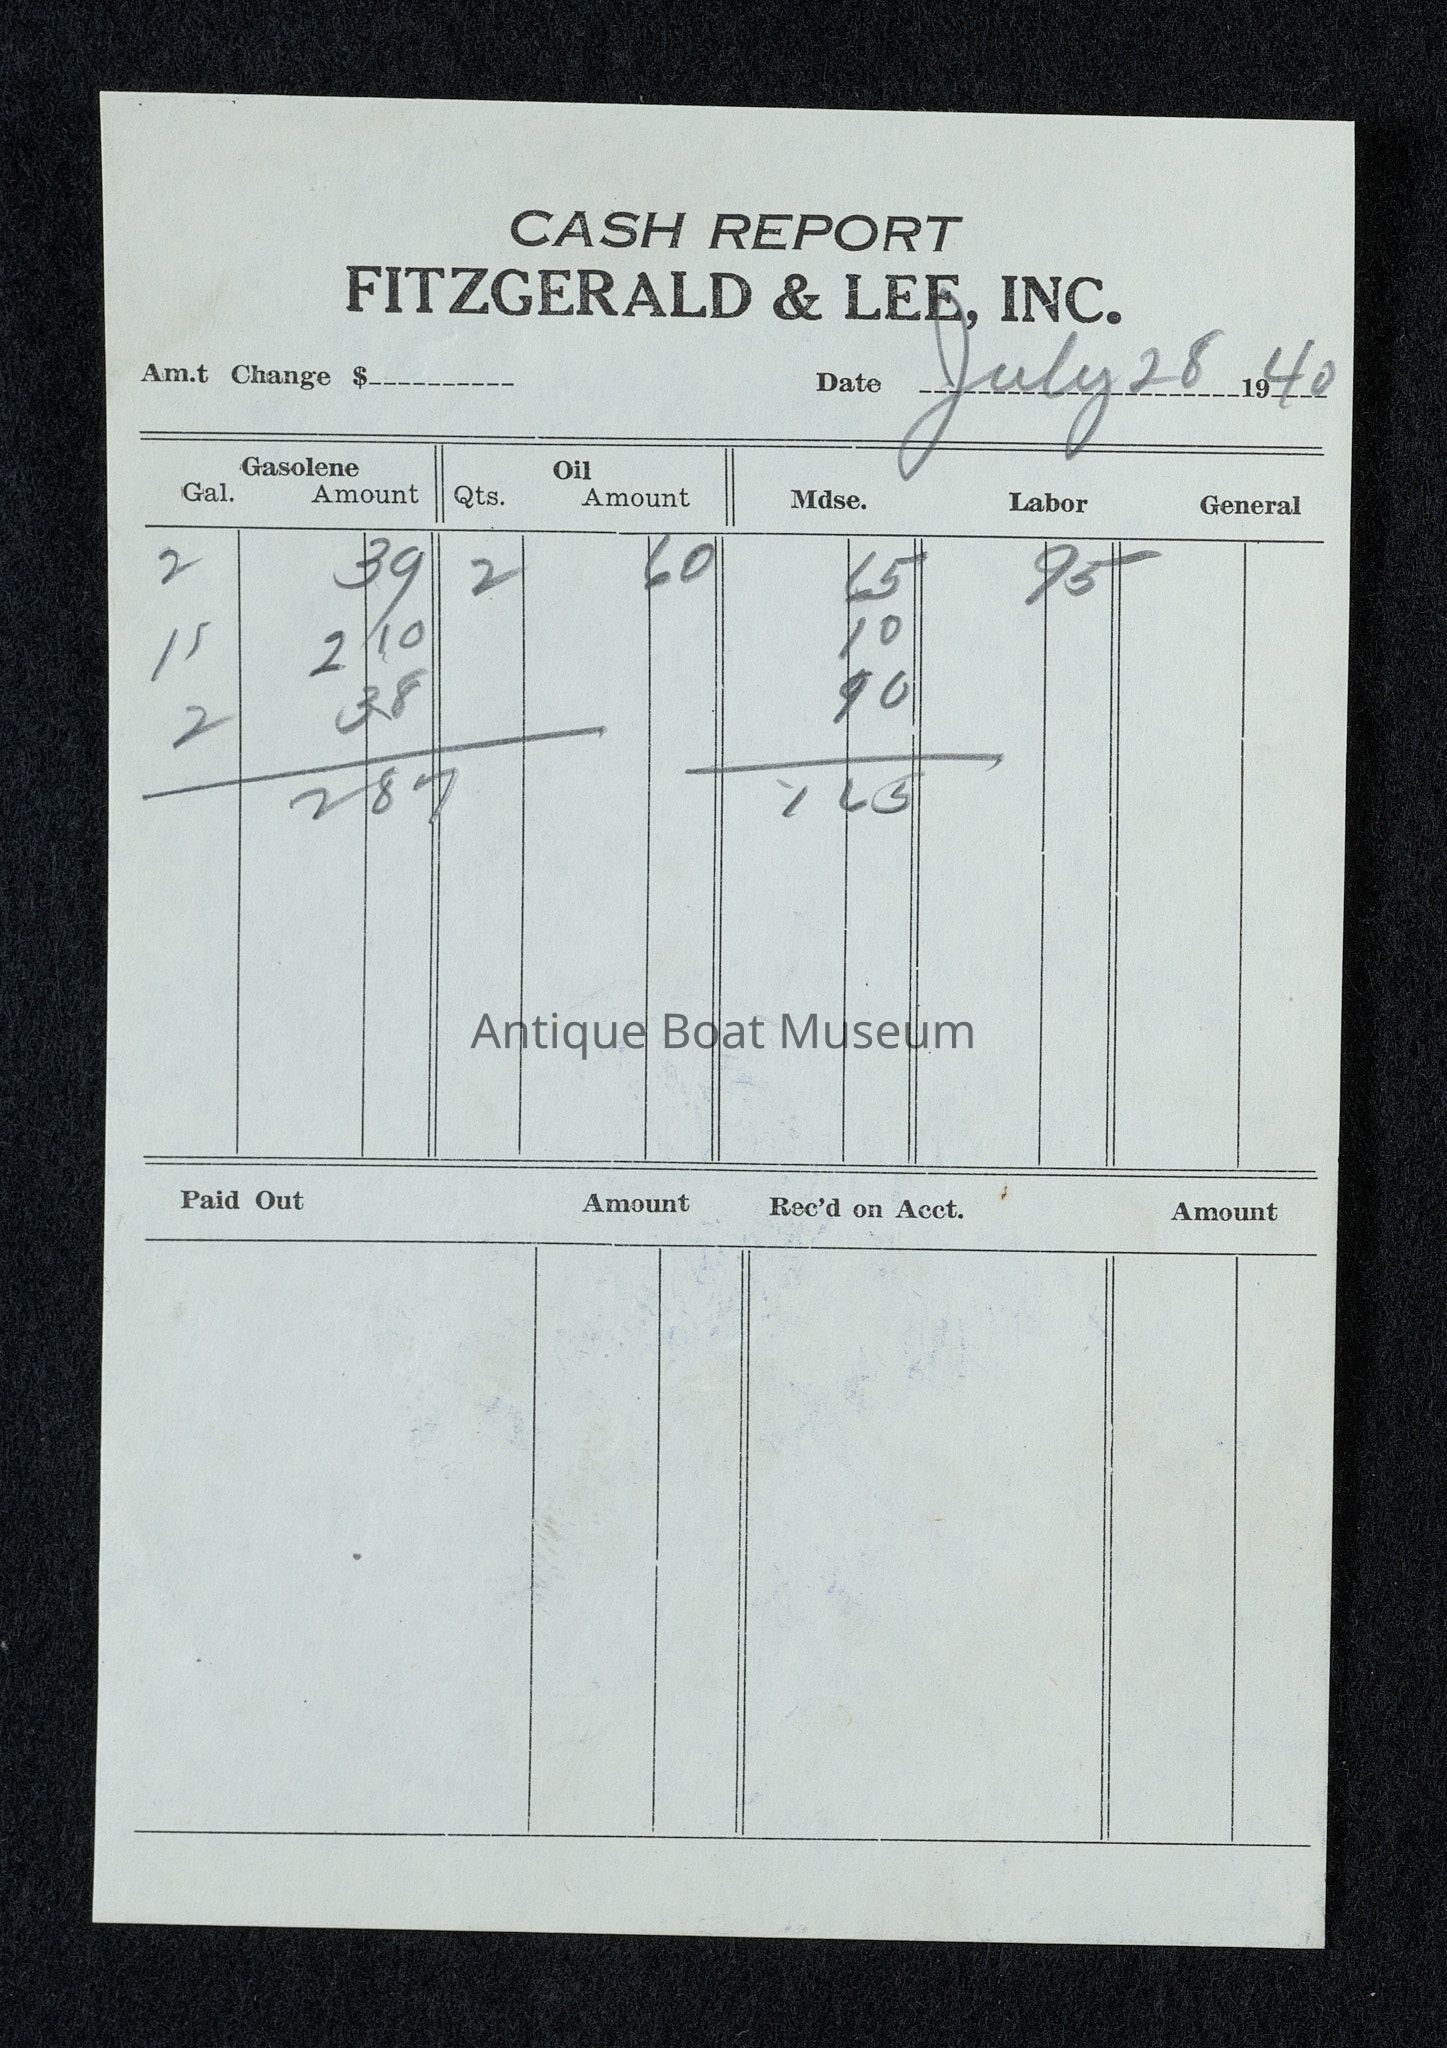 CASH REPORT
FITZGERALD & LEE, INC.
Am.t Change $ Date July 28 1940
Gasolene Oil
Gal. Amount Qts. Amount Mdse. Labor General
2 39 2 60 65 95
15 2 10 10
2 38 90
2 87 1 65
Antique Boat Museum
Paid Out Amount Rec'd on Acct. Amount